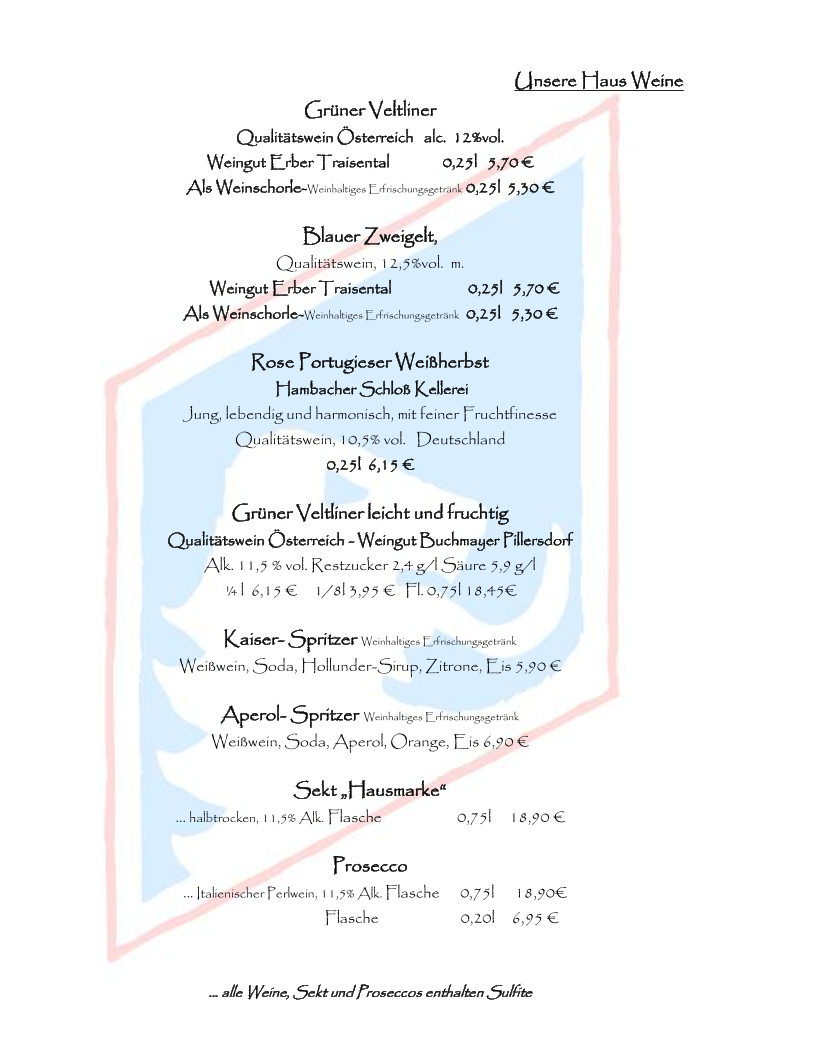 Unsere Haus Weine
Grüner Veltliner
Qualitätswein Österreich alc. 12%vol.
Weingut Erber Traisental 0,25l 5,70 €
Als Weinschorle-Weinhaltiges Erfrischungsgetränk 0,25l 5,30 €
Blauer Zweigelt,
Qualitätswein, 12,5%vol. m.
Weingut Erber Traisental 0,25l 5,70 €
Als Weinschorle-Weinhaltiges Erfrischungsgetränk 0,25l 5,30 €
Rose Portugieser Weißherbst
Hambacher Schloß Kellerei
Jung, lebendig und harmonisch, mit feiner Fruchtfinesse
Qualitätswein, 10,5% vol. Deutschland
0,25l 6,15 €
Grüner Veltliner leicht und fruchtig
Qualitätswein Österreich - Weingut Buchmayer Pillersdorf
Alk. 11,5 % vol. Restzucker 2,4 g/l Säure 5,9 g/l
¼ l 6,15 € 1/8l 3,95 € Fl. 0,75l 18,45€
Kaiser- Spritzer Weinhaltiges Erfrischungsgetränk
Weißwein, Soda, Hollunder-Sirup, Zitrone, Eis 5,90 €
Aperol- Spritzer Weinhaltiges Erfrischungsgetränk
Weißwein, Soda, Aperol, Orange, Eis 6,90 €
Sekt „Hausmarke“
... halbtrocken, 11,5% Alk. Flasche 0,75l 18,90 €
Prosecco
... Italienischer Perlwein, 11,5% Alk. Flasche 0,75l 18,90€
Flasche 0,20l 6,95 €
... alle Weine, Sekt und Proseccos enthalten Sulfite